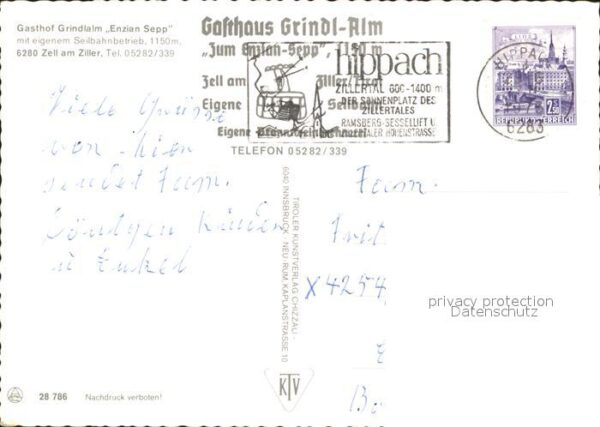 Gasthof Grindlalm „Enzian Sepp"
mit eigenem Seilbahnbetrieb, 1150m,
6280 Zell am Ziller, Tel. 05282/339
Gasthaus Grindl-Alm
„Zum Enzian-Sepp", 1150 m
Zell am Ziller/Tirol
Eigene Seilbahn
Eigene
TELEFON 05282/339
hippach
ZILLERTAL 600-1400 m
DER SONNENPLATZ DES
ZILLERTALES
RAMSBERG-SESSELLIFT U.
ZILLERTALER HÖHENSTRASSE
LINZ
2.50
REPUBLIK ÖSTERREICH
HIPPACH
6283
Viele Grüsse
von hier
sendet Fam.
Kinder
u Enkel
Fam.
Frit
X4254
privacy protection
Datenschutz
TIROLER KUNSTVERLAG CHIZZALI
6040 INNSBRUCK · NEU-RUM, KAPLANSTRASSE 10
KTV
28 786 Nachdruck verboten!